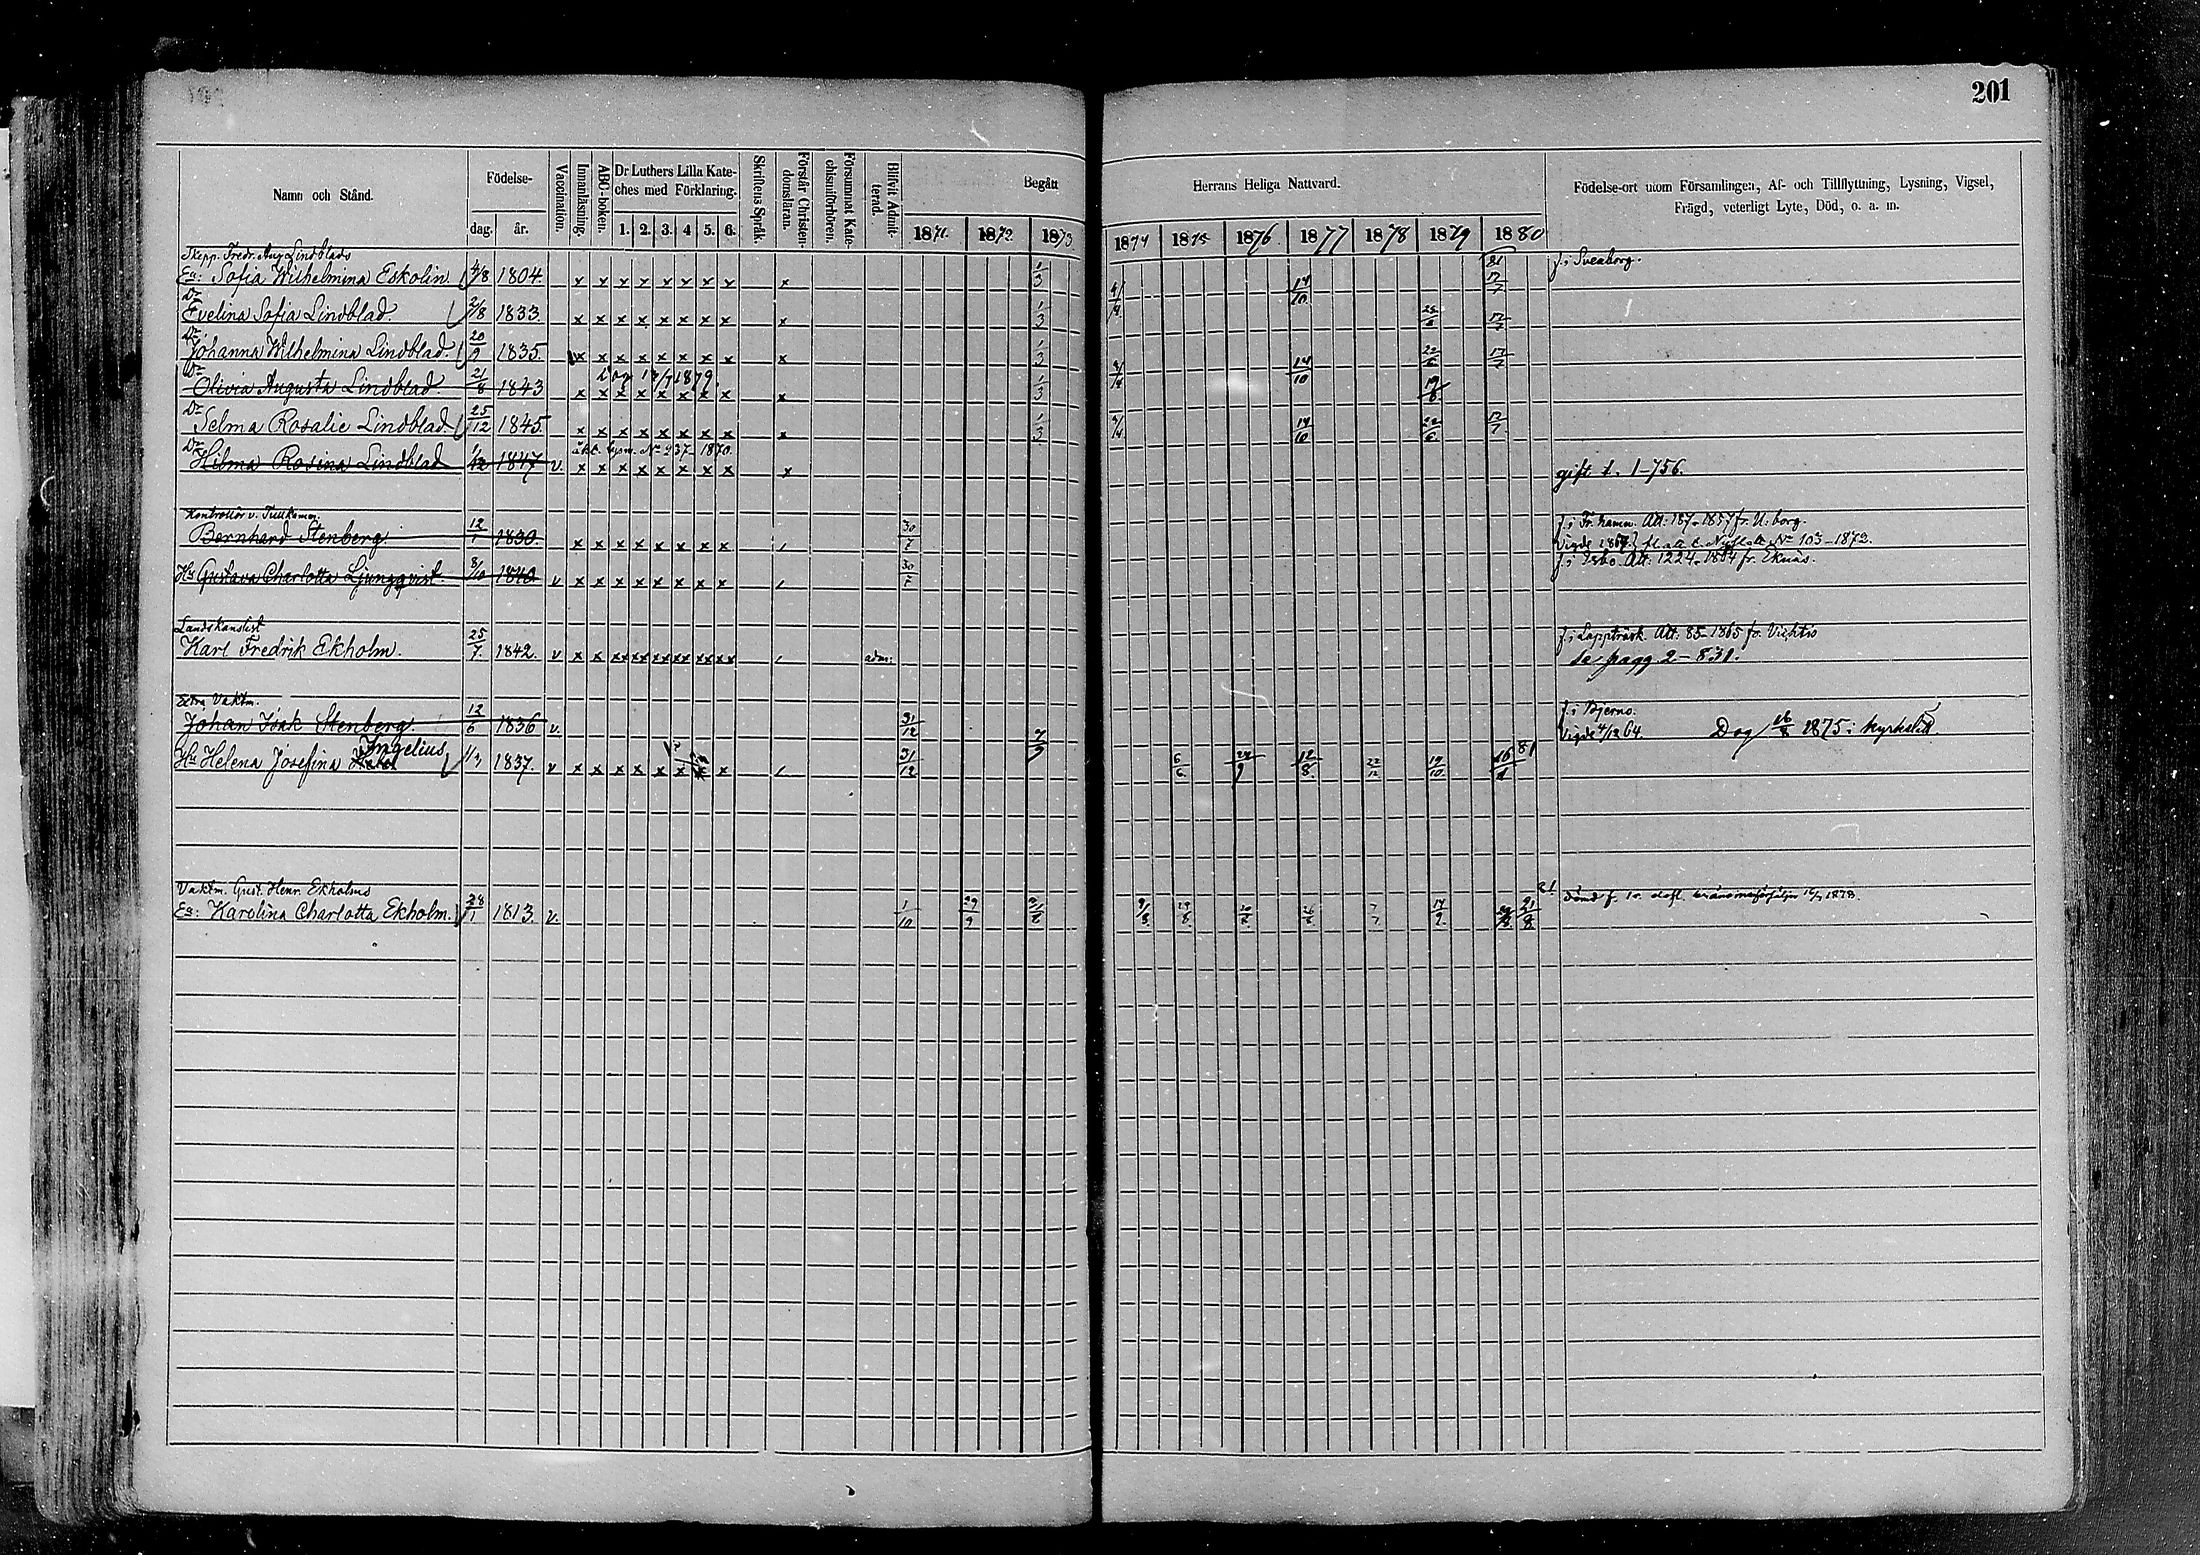 201
Namn och Stånd.
Födelse-
dag. år.
Vaccination.
Innanläsning.
ABC-boken.
Dr Luthers Lilla Kate-
ches med Förklaring.
1. 2. 3. 4 5. 6.
Skriftens Språk.
Förstår Christen-
domsläran.
Försummat Kate-
chismiförhören.
Blifvit Admit-
terad.
Begått Herrans Heliga Nattvard.
1871. 1872. 1873. 1874 1875 1876. 1877 1878 1879 1880
Födelse-ort utom Församlingen, Af- och Tillflyttning, Lysning, Vigsel,
Frägd, veterligt Lyte, Död, o. a. m.
Skepp. Fredr. Aug Lindblads 81 f. i Sveaborg.
Ea: Sofia Wilhelmina Eskolin 4/8 1804. x x x x x x x x x 1/3 14/10 17/7
Dr
Evelina Sofia Lindblad 2/8 1833. x x x x x x x x x 1/3 17/7
Dr
Johanna Wilhelmina Lindblad. 20/9 1835. x x x x x x x x x 1/3 14/10 22/6 17/7
Dr
Olivia Augusta Lindblad. 21/8 1843 1879. x x x x x x x x x 1/3
Dr
Selma Rosalie Lindblad. 25/12 1845. x x x x x x x x x 1/3 14/10 22/6 17/7
Dr äkt. lysn. No 237 1870.
Hilma Rosina Lindblad 1/12 1847 v. x x x x x x x x x gift f. 1-756.
Kontrollör v. Tullkamm. f. i Fr. hamn. Att: 187-1857 fr. N: borg.
Bernhard Stenberg 12/1 1830. x x x x x x x x 30/7 No 103-1872.
Hu Gustava Charlotta Ljungqvist. 8/10 1840 v x x x x x x x x 30/7 f. i Esbo. Att: 1224-1864 fr. Eknäs.
Landskanslist f. i Lappträsk. Att: 85-1865 fr. Vichtis
Karl Fredrik Ekholm. 25/7. 1842. v x x xx xx xx xx xx xx adm: se pagg 2-831.
Extra Vaktm. f. i Bjerno.
Johan Isak Stenberg. 12/6 1836 v. 31/12 Vigde 4/12 64. Dog 1875:
Ingelius
Hu Helena Josefina 1837. v x x x x x x x x 31/12 6/6 12/8 22/12 19/10 81
Vaktm. Gust. Henr. Ekholms 81
Ea: Karolina Charlotta Ekholm. 28/1 1813. v. 1/10 29/9 29/8 7/7 21/8 1878.